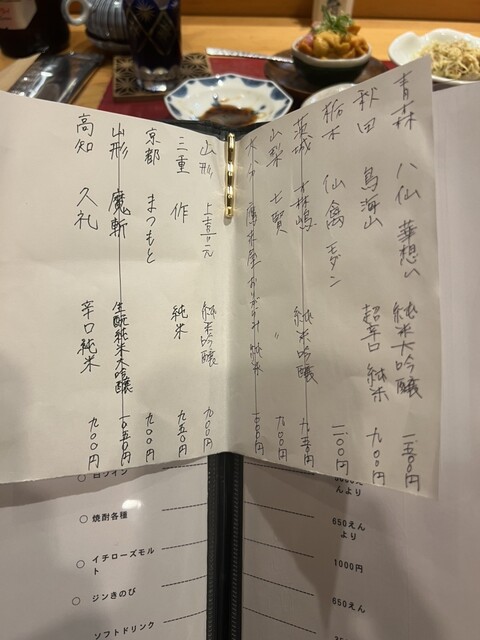 青森 八仙 華想い 純米大吟醸 一、五〇〇円
秋田 鳥海山 超辛口 純米 九〇〇円
栃木 仙禽 モダン 一、一〇〇円
茨城 森嶋 純米吟醸 九五〇円
山梨 七賢 〃 九〇〇円
純米
山形 上喜元 純米吟醸 九〇〇円
三重 作 純米 九五〇円
京都 まつもと 九〇〇円
山形 魔斬 生酛純米大吟醸 一、〇五〇円
高知 久礼 辛口純米 九〇〇円
んより
○ 焼酎各種 650えんより
○ イチローズモルト 1000円
○ ジンきのび 650えん
ソフトドリンク